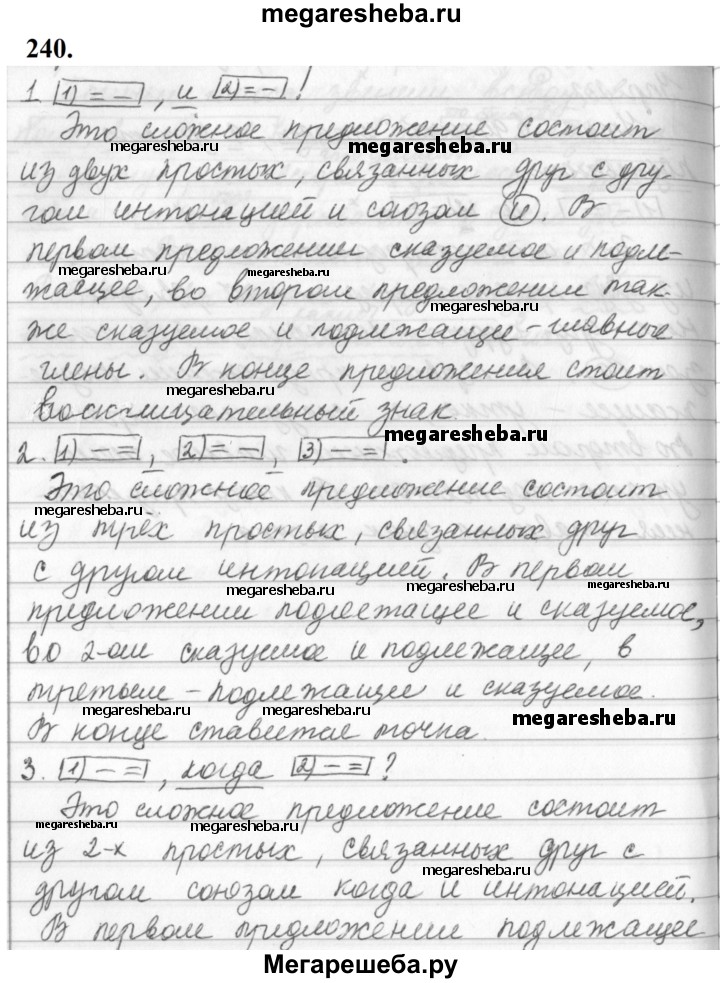 megaresheba.ru
240.
1. [1) = –], и [2) = –]!
Это сложное предложение состоит
megaresheba.ru
из двух простых, связанных друг с дру-
гом интонацией и союзом и. В
первом предложении сказуемое и подле-
megaresheba.ru megaresheba.ru
жащее, во втором предложении так-
megaresheba.ru
же сказуемое и подлежащее – главные
члены. В конце предложения стоит
megaresheba.ru
восклицательный знак.
megaresheba.ru
2. [1) – =], [2) = –], [3) – =].
Это сложное предложение состоит
megaresheba.ru
из трёх простых, связанных друг
с другом интонацией. В первом
megaresheba.ru megaresheba.ru megaresheba.ru
предложении подлежащее и сказуемое,
во 2-ом сказуемое и подлежащее, в
третьем – подлежащее и сказуемое.
megaresheba.ru megaresheba.ru megaresheba.ru
В конце ставится точка.
3. [1) – =], когда [2) – =]?
Это сложное предложение состоит
megaresheba.ru megaresheba.ru
из 2-х простых, связанных друг с
megaresheba.ru
другом союзом когда и интонацией.
В первом предложении подлежащее
Мегарешеба.ру